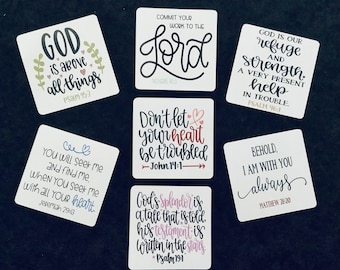 GOD
is above
all things
PSALM 95:3
COMMIT YOUR
WORK TO THE
Lord
GOD IS OUR
refuge
AND
strength,
A VERY PRESENT
help
IN TROUBLE.
PSALM 46:1
YOU WILL SEEK ME
AND FIND ME,
WHEN YOU SEEK ME
WITH ALL YOUR heart.
JEREMIAH 29:13
Don't let
your heart
be troubled
John 14:1
BEHOLD,
I AM WITH YOU
always
MATTHEW 28:20
God's splendor is
a tale that is told,
his testament is
written in the stars.
Psalm 19:1